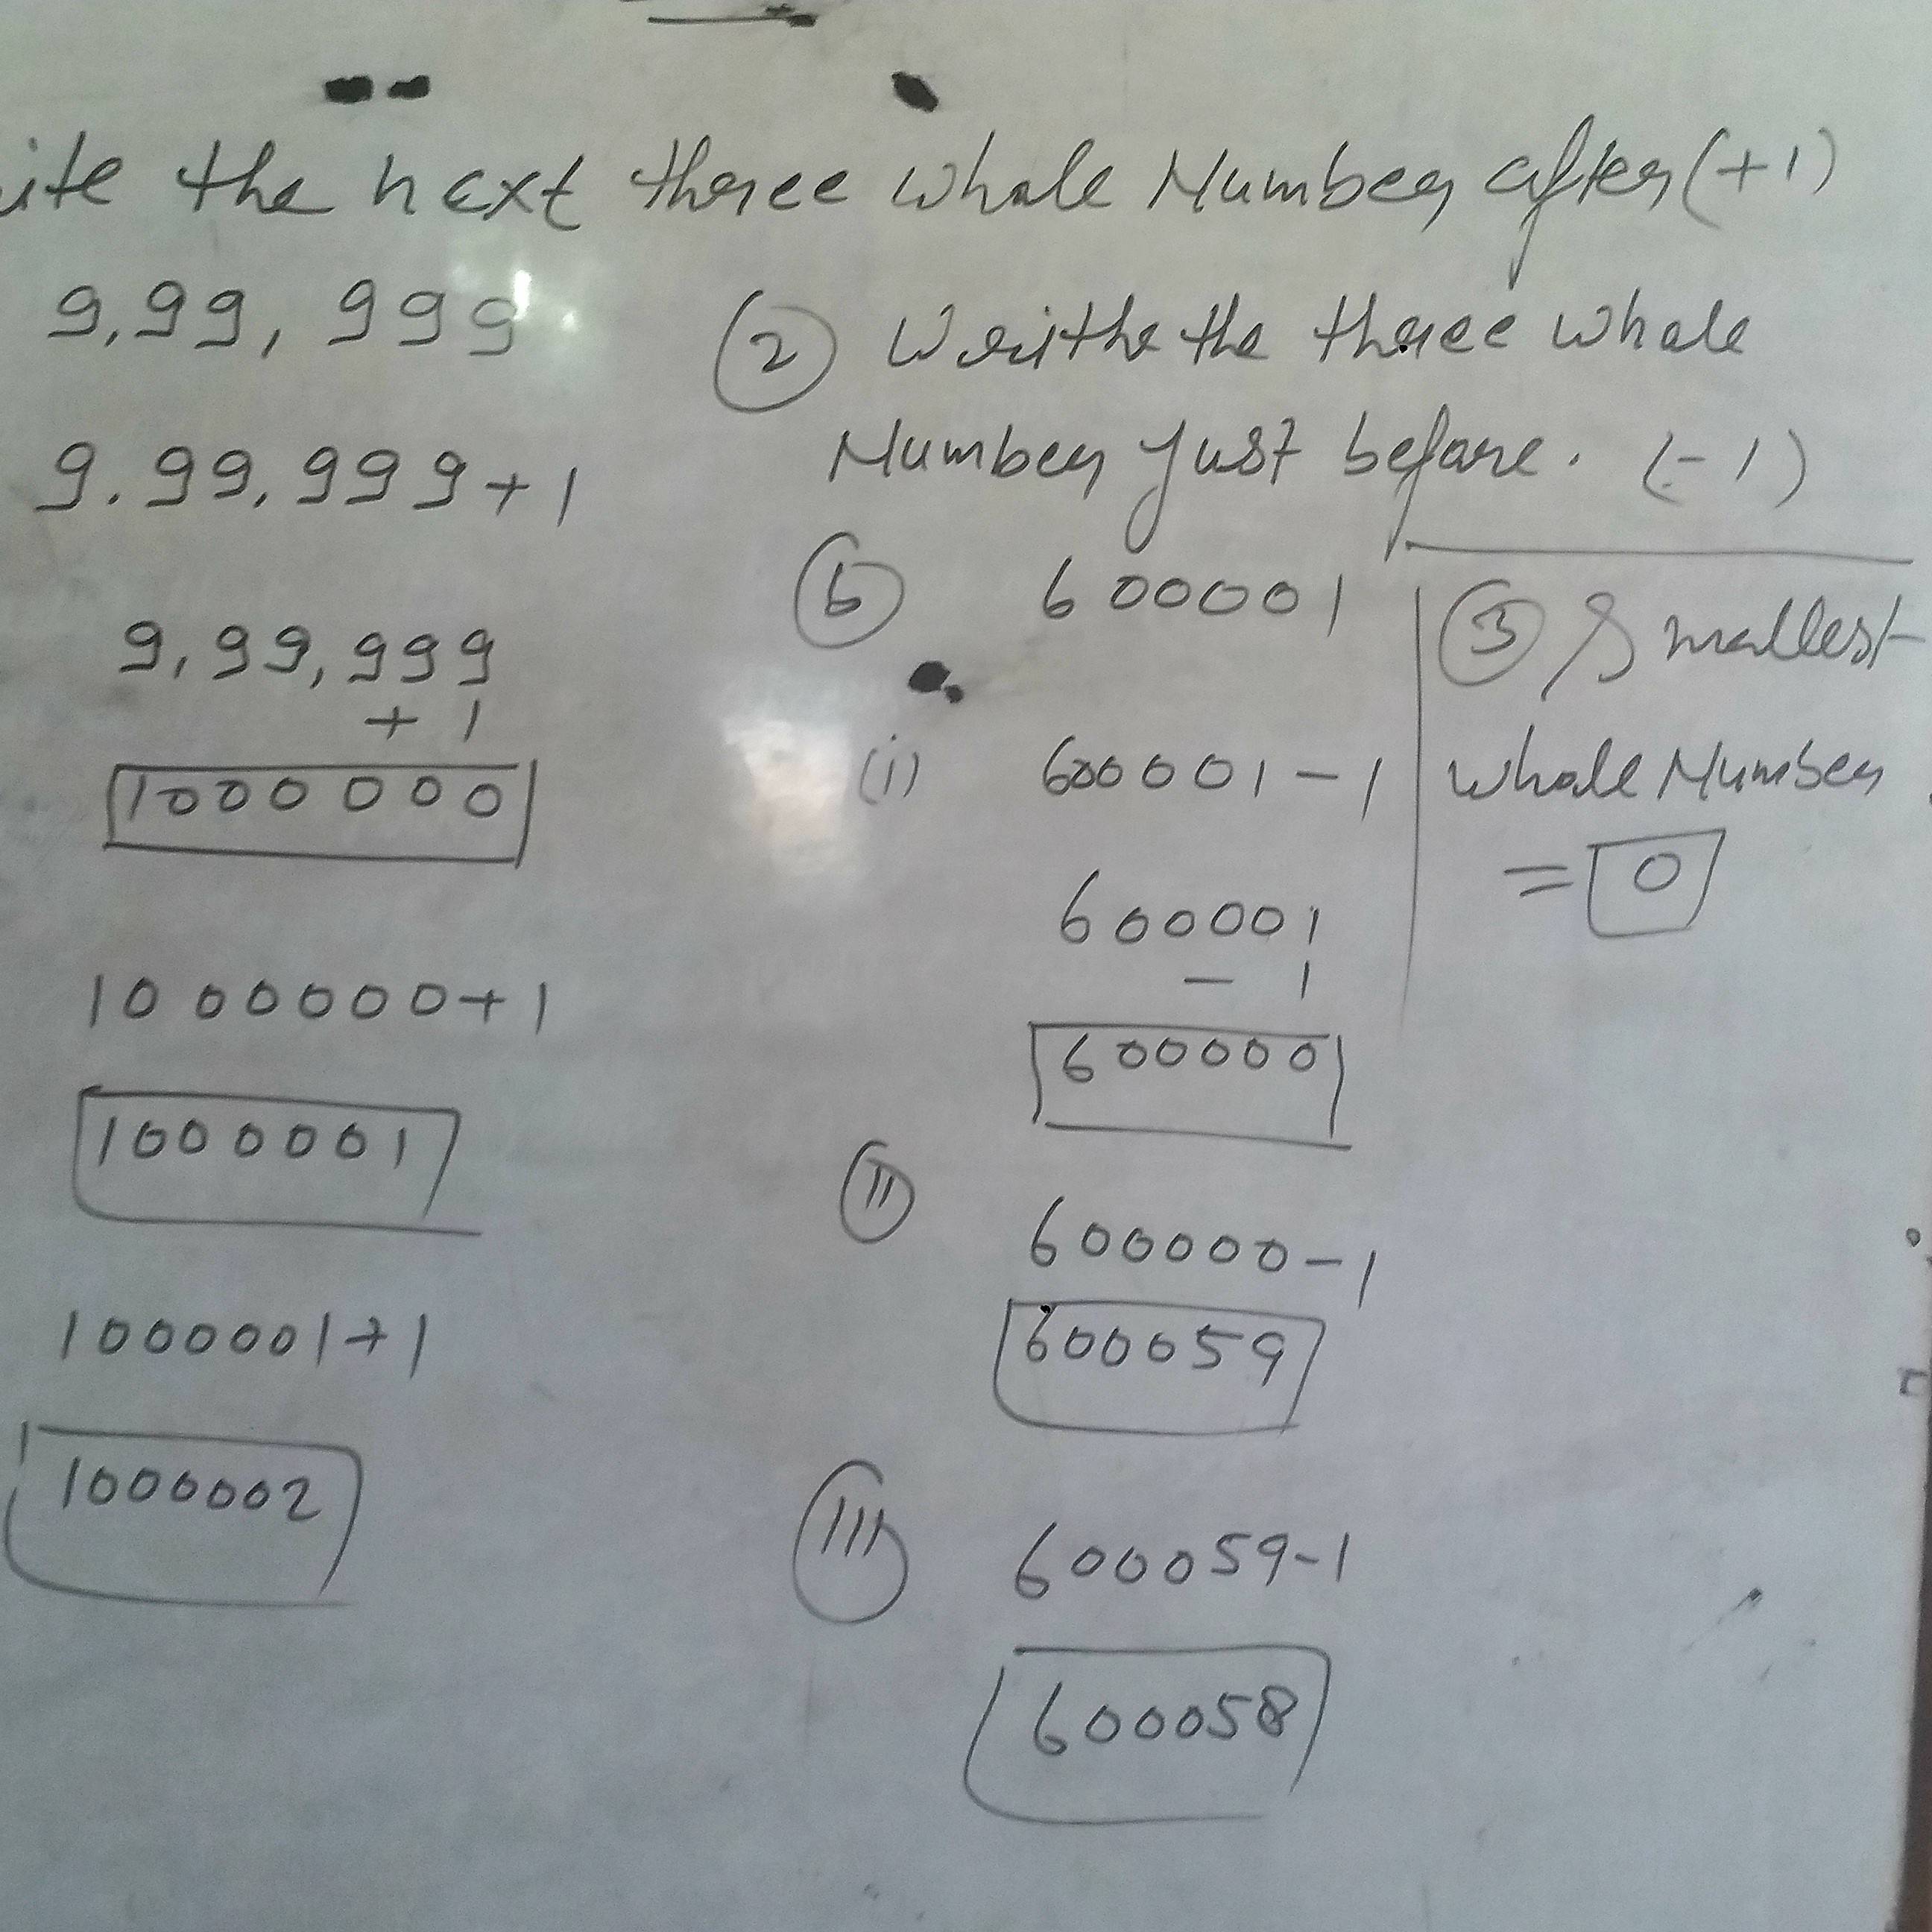 ite the next three whole Number after (+1)
9,99,999
9.99,999+1
9,99,999
+ 1
1000000
1000000+1
1000001
1000001+1
1000002
(2) Writhe the three whole
Number just before. (-1)
(b) 600001
(i) 600001-1
600001
- 1
600000
(ii) 600000-1
600059
(iii) 600059-1
600058
(3) Smallest
whole Number
= 0